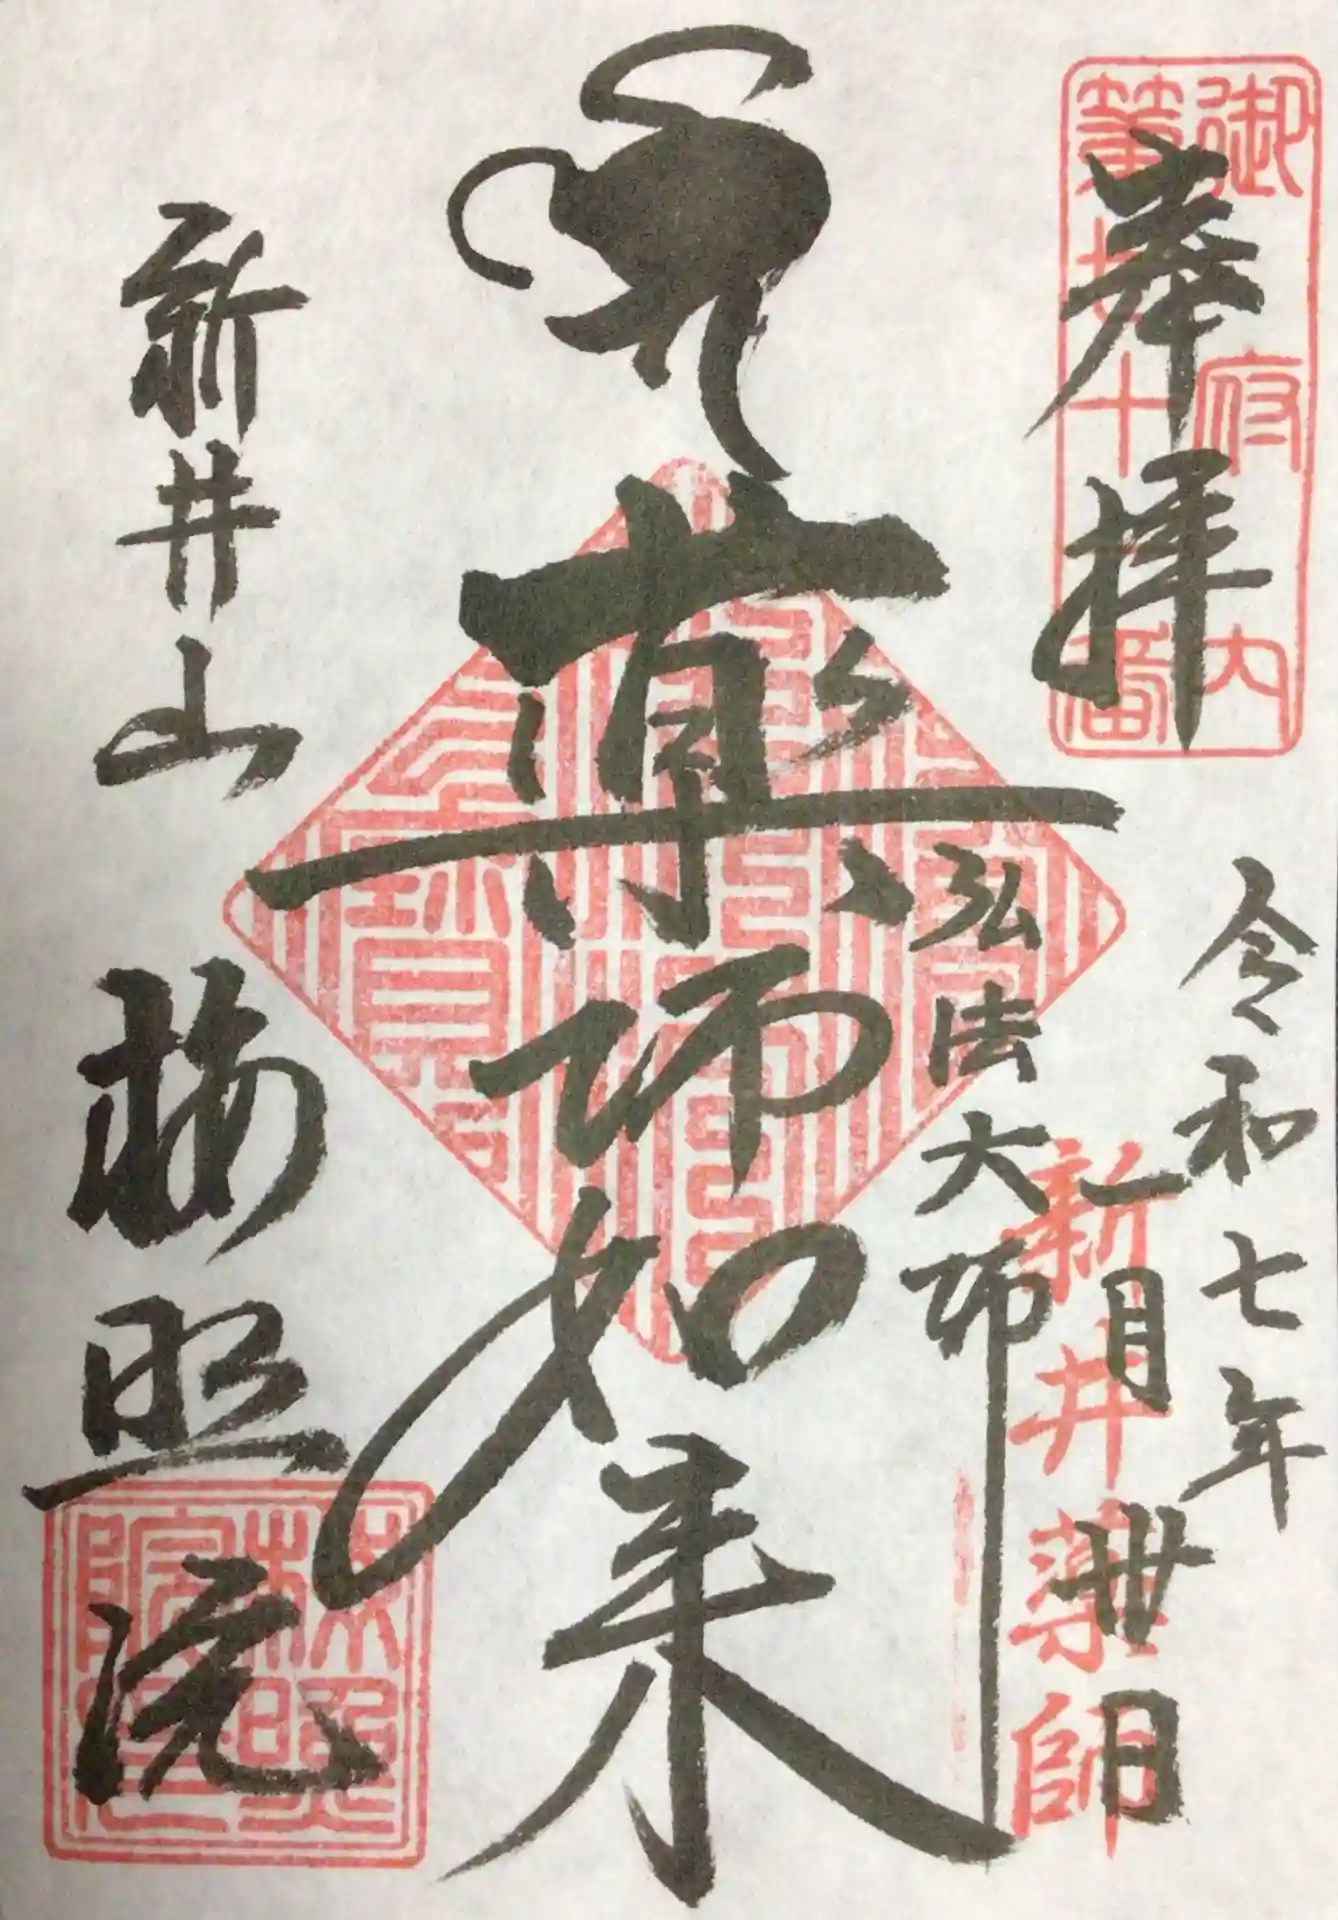 御府内
第七十一番
奉拝
令和七年
一月卅日
新井薬師
弘法大師
薬師如来
新井山
梅照院
梅照
院印